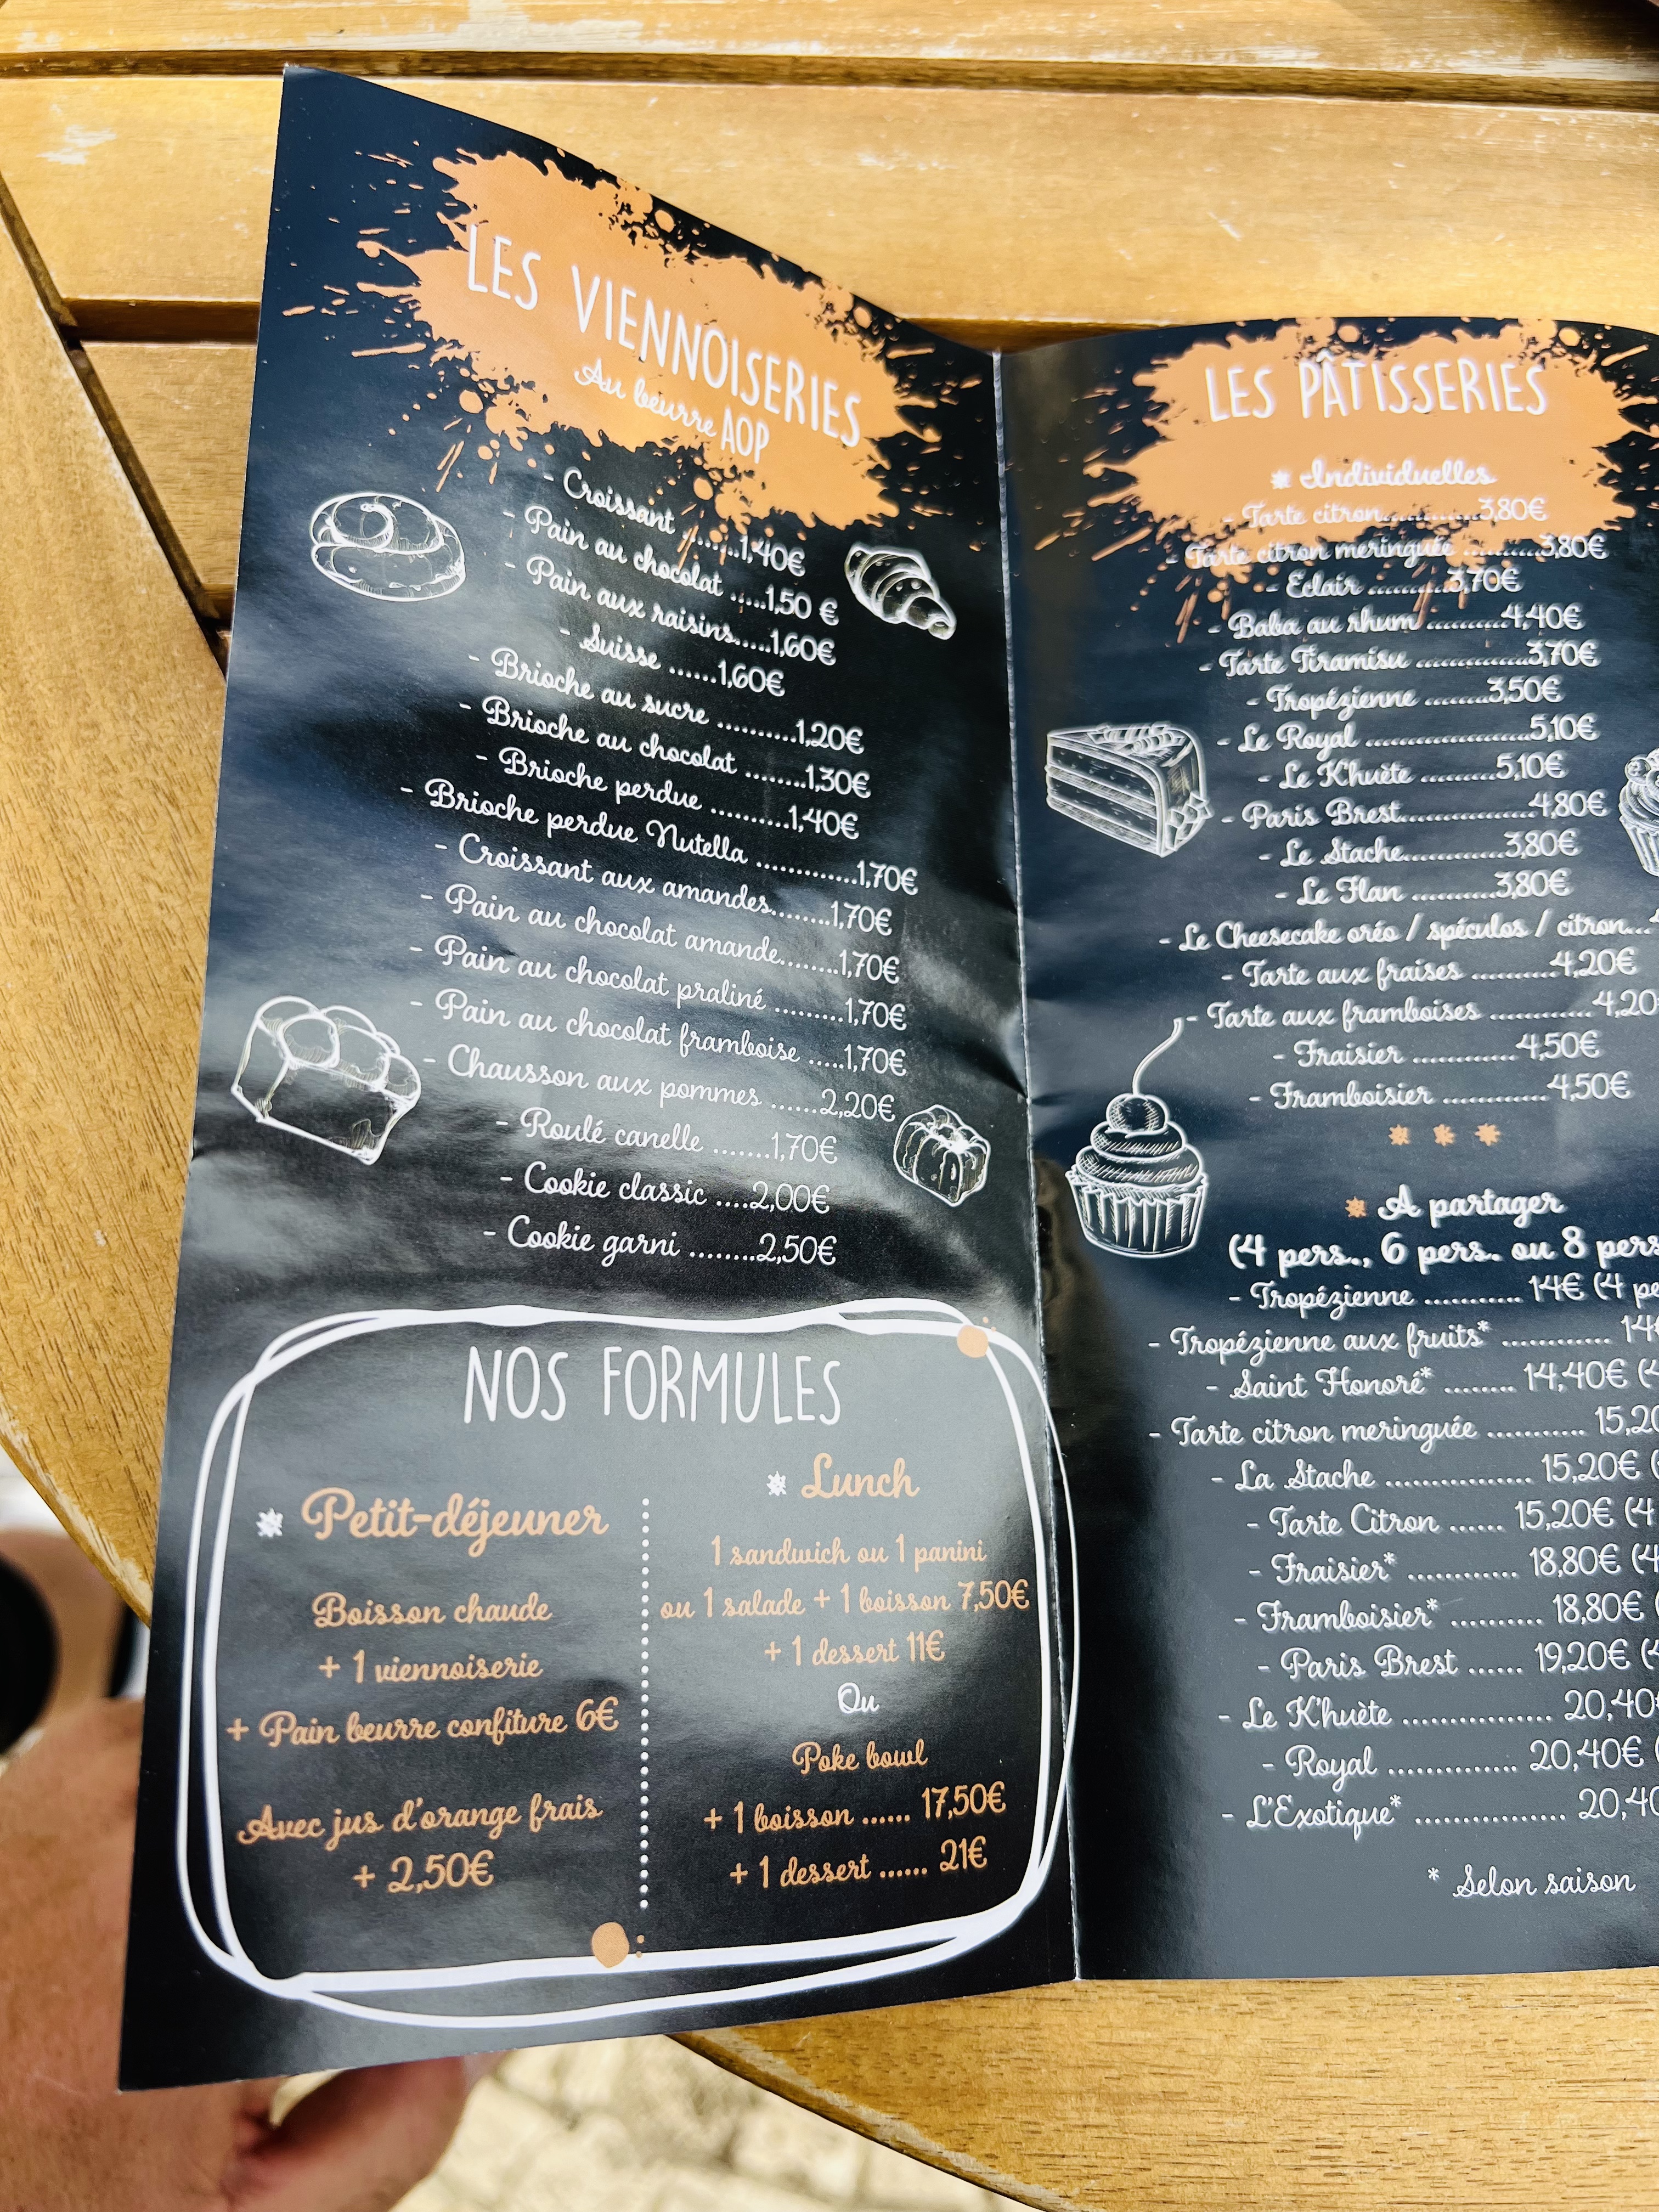 LES VIENNOISERIES
Au beurre AOP
- Croissant .......1,40€
- Pain au chocolat .....1,50 €
- Pain aux raisins.....1,60€
- Suisse .......1,60€
- Brioche au sucre ..........1,20€
- Brioche au chocolat ........1,30€
- Brioche perdue ..........1,40€
- Brioche perdue Nutella .............1,70€
- Croissant aux amandes........1,70€
- Pain au chocolat amande........1,70€
- Pain au chocolat praliné .........1,70€
- Pain au chocolat framboise .....1,70€
- Chausson aux pommes ......2,20€
- Roulé canelle .......1,70€
- Cookie classic ....2,00€
- Cookie garni ........2,50€
NOS FORMULES
Petit-déjeuner
Boisson chaude
+ 1 viennoiserie
+ Pain beurre confiture 6€
Avec jus d'orange frais
+ 2,50€
Lunch
1 sandwich ou 1 panini
ou 1 salade + 1 boisson 7,50€
+ 1 dessert 11€
Ou
Poke bowl
+ 1 boisson ...... 17,50€
+ 1 dessert ...... 21€
LES PÂTISSERIES
Individuelles
- Tarte citron.............3,80€
- Tarte citron meringuée ..........3,80€
- Eclair ..........3,70€
- Baba au rhum ..........4,40€
- Tarte Tiramisu ...............3,70€
- Tropézienne ........3,50€
- Le Royal ......................5,10€
- Le K'huète ..........5,10€
- Paris Brest.................4,80€
- Le Stache.............3,80€
- Le Flan ..........3,80€
- Le Cheesecake oréo / spéculos / citron...
- Tarte aux fraises ..........4,20€
- Tarte aux framboises .............4,20
- Fraisier .............4,50€
- Framboisier .............4,50€
A partager
(4 pers., 6 pers. ou 8 pers
- Tropézienne ............ 14€ (4 pe
- Tropézienne aux fruits* ............. 14
- Saint Honoré* ........ 14,40€ (
- Tarte citron meringuée ........... 15,20
- La Stache ................. 15,20€ (
- Tarte Citron ...... 15,20€ (4
- Fraisier* ............. 18,80€ (4
- Framboisier* .......... 18,80€
- Paris Brest ...... 19,20€ (
- Le K'huète ................. 20,40
- Royal ............... 20,40€ (
- L'Exotique* ................. 20,40
* Selon saison